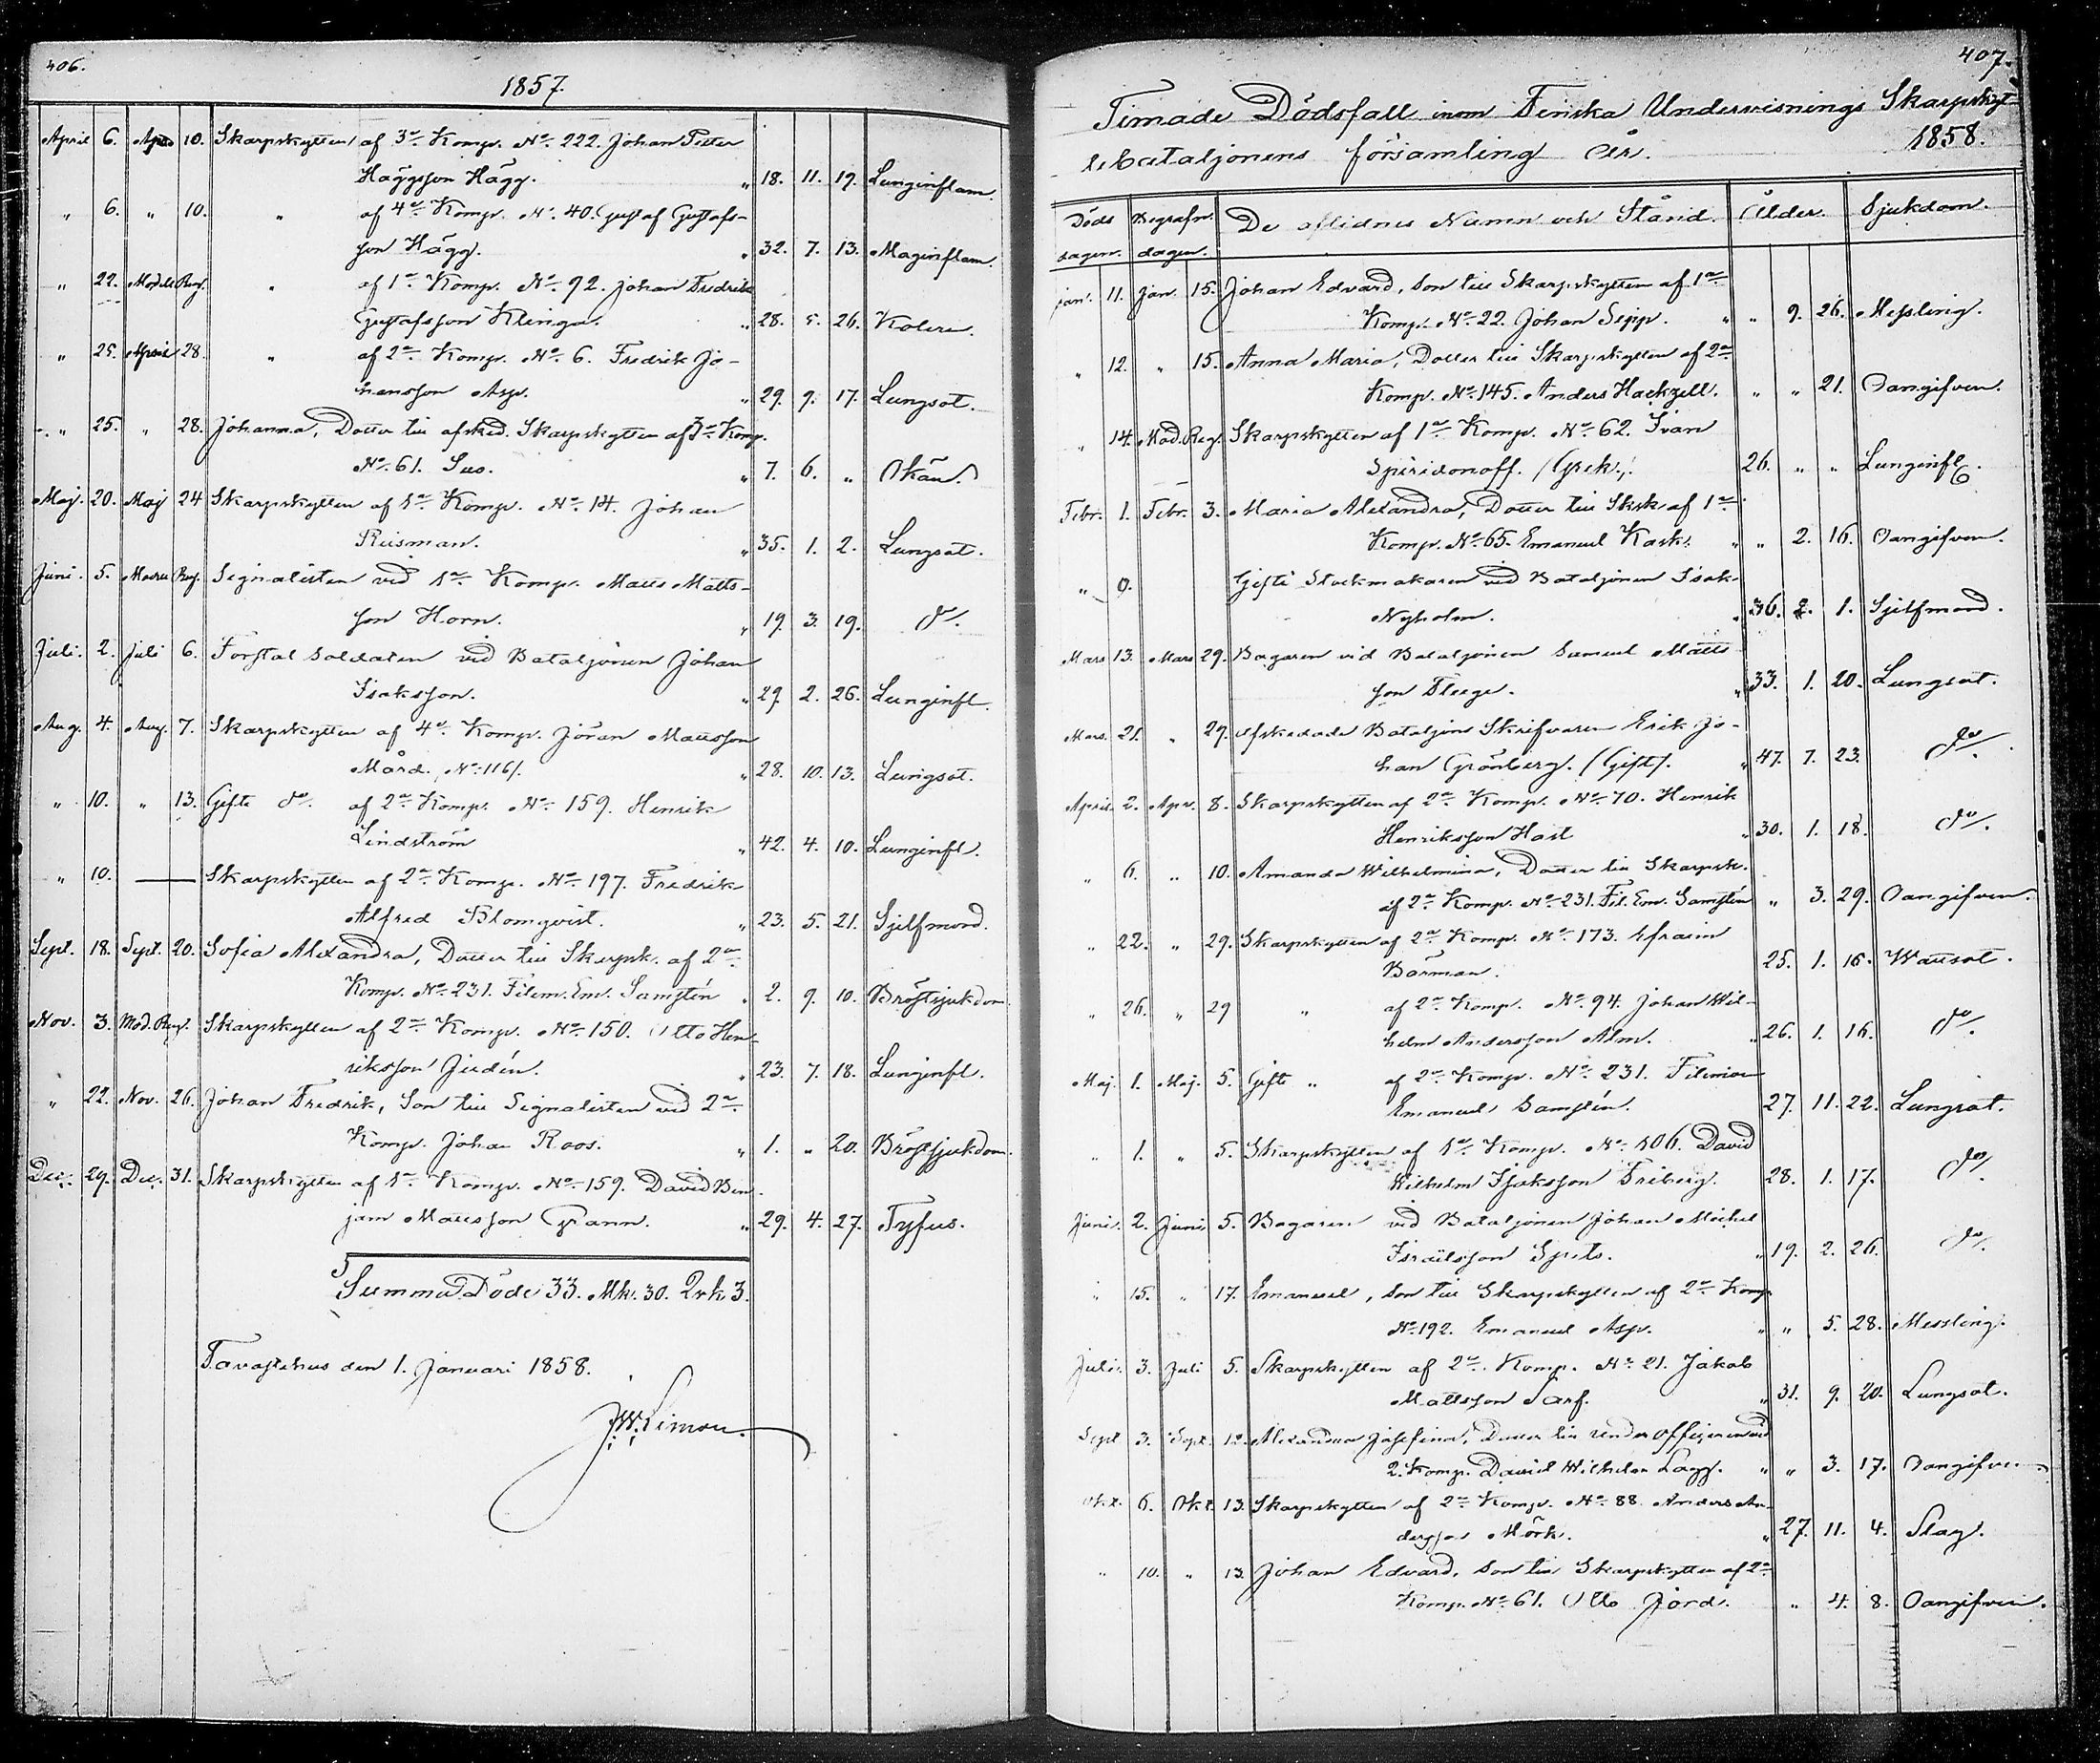 406.
1857.
April 6. April 10. Skarpskytten af 3:e Komp. No. 222. Johan Petter
Häggsson Hägg. " 18. 11. 19. Lunginflam.
" 6. " 10. " af 4:e Komp. No. 40. Gustaf Gustafs-
son Hägg. " 32. 7. 13. Maginflam.
" 22. Reg. " af 1:a Komp. No. 92. Johan Fredrik
Gustafsson Klinga. " 28. 5. 26. Kolera.
" 25. April 28. " af 2:a Komp. No. 6. Fredrik Jo-
hansson Asp. " 29. 9. 17. Lungsot.
" 25. " 28. Johanna, Dotter till afsked. Skarpskytten af 3:e Komp.
No. 61. Sus. " 7. 6. " Okän.
Maj. 20. Maj 24 Skarpskytten af 1:a Komp. No. 14. Johan
Riisman. " 35. 1. 2. Lungsot.
Juni. 5. Reg. Signalisten vid 1:a Komp. Matts Matts-
son Horn. " 19. 3. 19. do.
Juli. 2. Juli 6. Forstal Soldaten vid Bataljonen Johan
Isaksson. " 29. 2. 26. Lunginfl.
Aug. 4. Aug. 7. Skarpskytten af 4:e Komp. Jöran Mattsson
Mård. No. 116/. " 28. 10. 13. Lungsot.
" 10. " 13. Gifte do. af 2:a Komp. No. 159. Henrik
Lindström " 42. 4. 10. Lunginfl.
" 10. — Skarpskytten af 2:a Komp. No. 197. Fredrik
Alfred Blomqvist. " 23. 5. 21. Sjelfmord.
Sept. 18. Sept. 20. Sofia Alexandra, Dotter till Skarpsk. af 2:a
Komp. No. 231. Filem. Em. Samstén " 2. 9. 10. Bröstsjukdom.
Nov. 3. Mod. Reg. Skarpskytten af 2:a Komp. No. 150. Otto Hen-
riksson Judén. " 23. 7. 18. Lunginfl.
" 22. Nov. 26. Johan Fredrik, Son till Signalisten vid 2:a
Komp. Johan Roos. " 1. " 20. Bröstsjukdom.
Dec. 29. Dec. 31. Skarpskytten af 1:a Komp. No. 159. David Ben-
jam Mattsson Grann. " 29. 4. 27. Tyfus.
Summa Döde 33. Mk. 30. Qvk. 3.
Tavastehus den 1. Januari 1858.
J. W. Limon
407.
Timade Dödsfall inom Finska Undervisnings Skarpskyt-
tebataljonens församling År. 1858.
Döds dagen. Begrafn. dagen. De aflidnes Namn och Stånd. Ålder. Sjukdom.
Jan. 11. Jan. 15. Johan Edvard, Son till Skarpskytten af 1:a
Komp. No. 22. Johan Sepp. " " 9. 26. Messling.
" 12. " 15. Anna Maria, Dotter till Skarpskytten af 2:a
Komp. No. 145. Anders Hackzell. " " 21. Oangifven.
" 14. Mod. Reg. Skarpskytten af 1:a Komp. No. 62. Ivan
Spiridonoff. /Grek./. 26. " " Lunginfl.
Febr. 1. Febr. 3. Maria Alexandra, Dotter till Sksk. af 1:a
Komp. No. 65. Emanuel Kask. " " 2. 16. Oangifven.
" 9. Gifte Stockmakaren vid Bataljonen Isak
Nyholm. " 36. 2. 1. Sjelfmord.
Mars 13. Mars 29. Bagaren vid Bataljonen Samuel Matts
son Flege. " 33. 1. 20. Lungsot.
Mars. 21. " 29. Afskedade Bataljons Skrifvaren Erik Jo-
han Grönberg. /Gift/. " 47. 7. 23. do.
April. 2. Apr. 8. Skarpskytten af 2:a Komp. No. 70. Henrik
Henriksson Hast " 30. 1. 18. do.
" 6. " 10. Amanda Wilhelmina, Dotter till Skarpsk.
af 2:a Komp. No. 231. Fil. Em. Samstén " 3. 29. Oangifven.
" 22. " 29. Skarpskytten af 2:a Komp. No. 173. Efraim
Börman. 25. 1. 16. Wattsot.
" 26. " 29 " af 2:a Komp. No. 94. Johan Wil-
helm Andersson Alm. " 26. 1. 16. do.
Maj. 1. Maj. 5. Gifte " af 2:a Komp. No. 231. Filemon
Emanuel Samstén. 27. 11. 22. Lungsot.
" 1. " 5. Skarpskytten af 1:a Komp. No. 106. David
Wilhelm Isaksson Friberg. 28. 1. 17. do.
Juni. 2. Juni. 5. Bagaren vid Bataljonen Johan Michel
Israëlsson Spets. " 19. 2. 26. do.
" 15. " 17. Emanuel, Son till Skarpskytten af 2:a Komp
No. 192. Emanuel Asp. " " 5. 28. Messling.
Juli. 3. Juli 5. Skarpskytten af 2:a Komp. No. 21. Jakob
Mattsson Sarf. " 31. 9. 20. Lungsot.
Sept 3. Sept. 12. Alexandra Josefina, Dotter till Underofficeren vid
2. Komp. David Wilhelm Lagg. " " 3. 17. Oangifven.
Okt. 6. Okt. 13. Skarpskytten af 2:a Komp. No. 88. Anders An-
dersson Mörk. " 27. 11. 4. Slag.
" 10. " 13. Johan Edvard, Son till Skarpskytten af 2:a
Komp. No. 61. Otto Jord. " 4. 8. Oangifven.